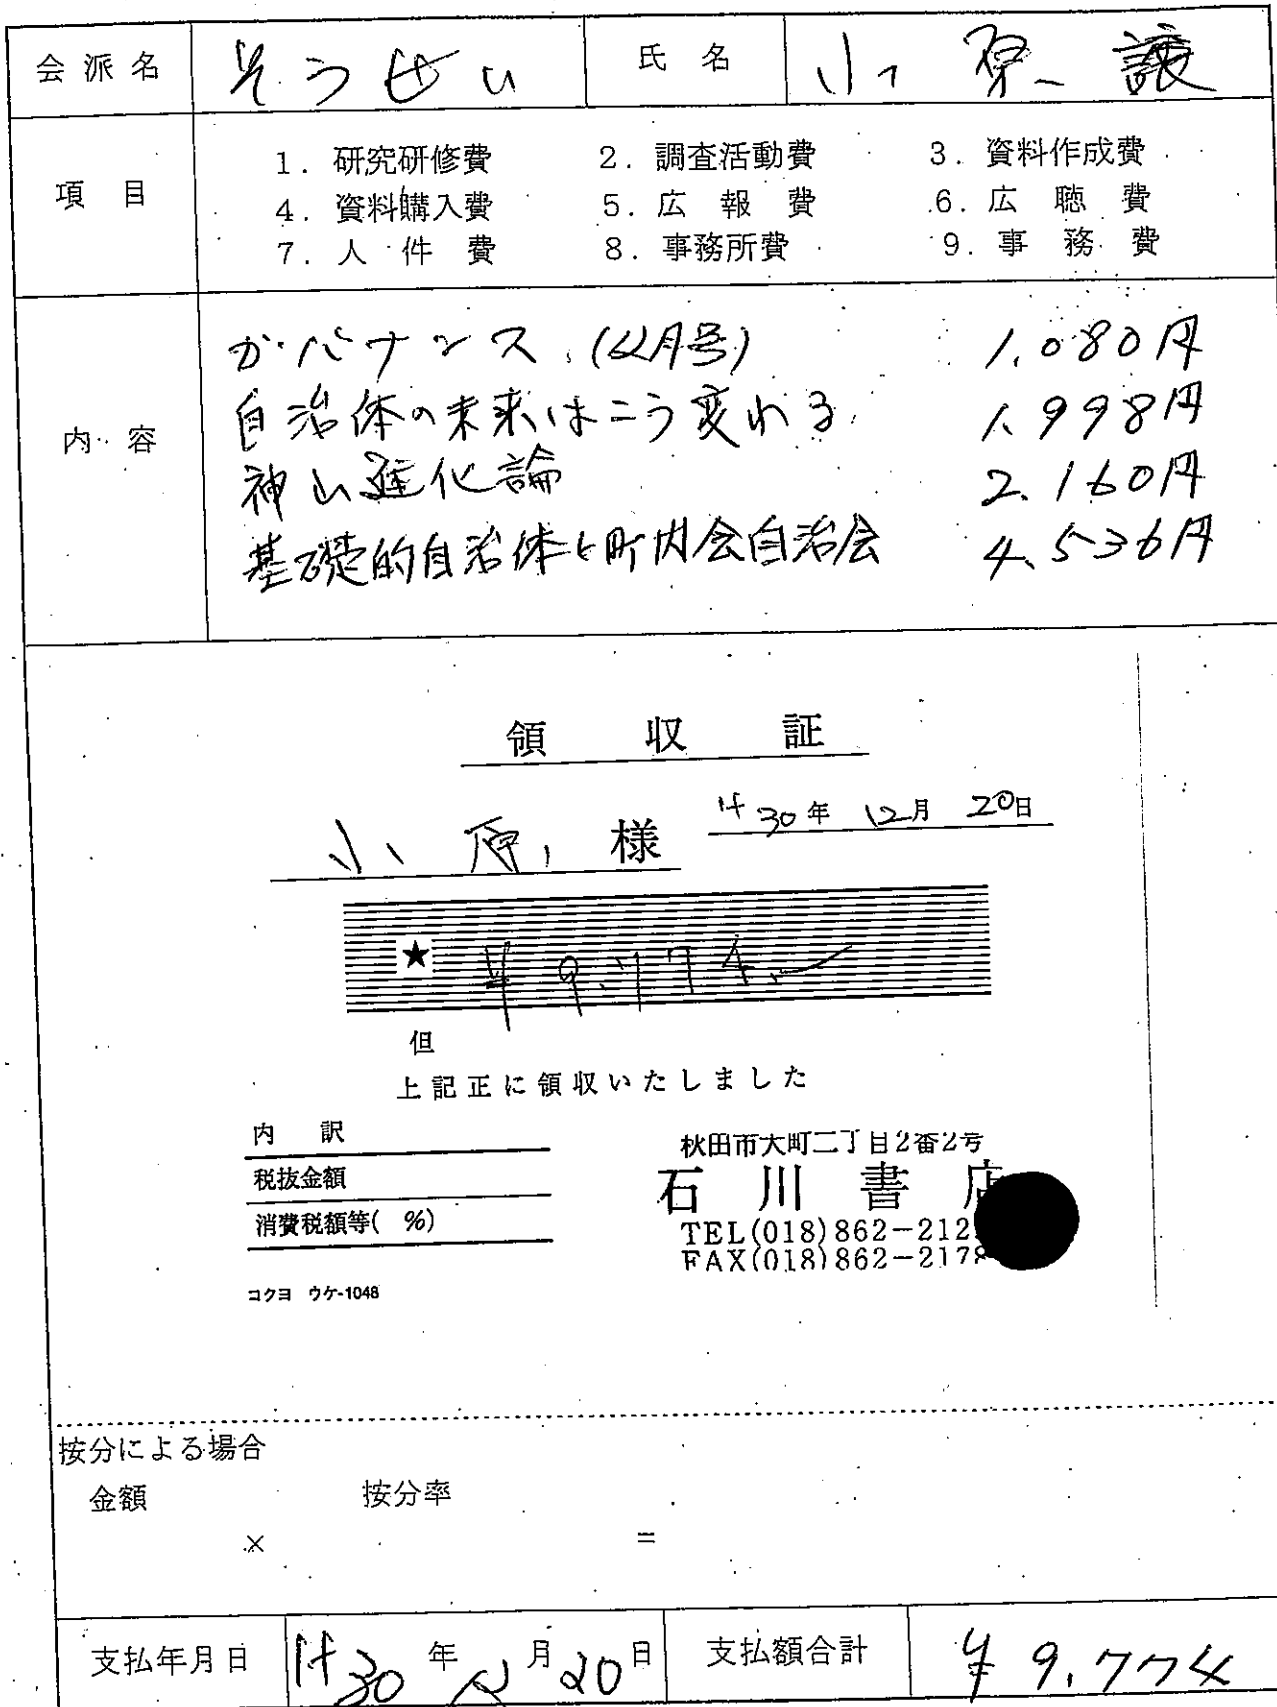 会派名 そうせい 氏名 小原 譲
項目
1. 研究研修費 2. 調査活動費 3. 資料作成費
4. 資料購入費 5. 広報費 6. 広聴費
7. 人件費 8. 事務所費 9. 事務費
内容
ガバナンス (12月号) 1,080円
自治体の未来はこう変わる 1,998円
神山進化論 2,160円
基礎的自治体と町内会自治会 4,536円
領収証
小原 様 H30年 12月 20日
★ ¥9,774
但
上記正に領収いたしました
内訳
税抜金額
消費税額等( %)
コクヨ ウケ-1048
秋田市大町二丁目2番2号
石川書店
TEL(018)862-212
FAX(018)862-217
按分による場合
金額 按分率
× =
支払年月日 H30年12月20日 支払額合計 ¥9,774